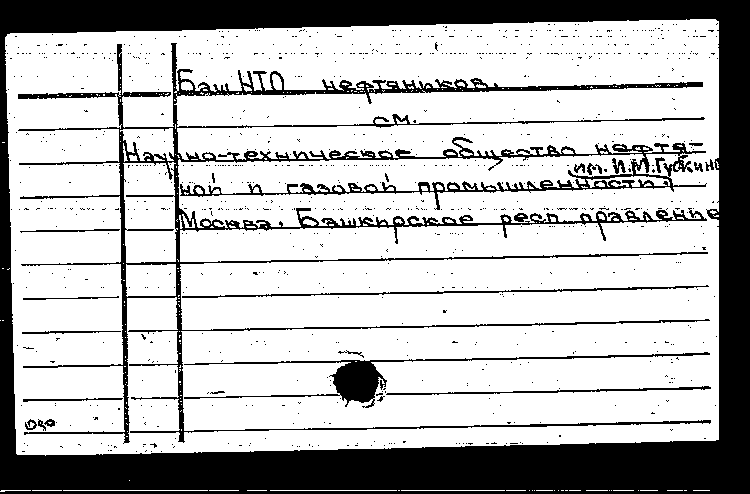 Баш НТО нефтяников.
см.
Научно-техническое общество нефтя-
им. И.М.Губкина
ной и газовой промышленности.
Москва. Башкирское респ. правление